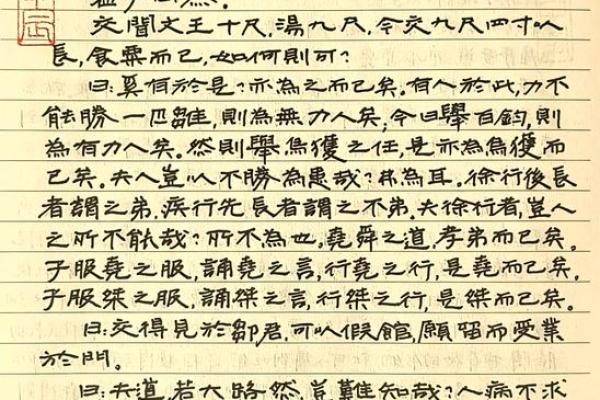 交聞文王十尺,湯九尺,今交九尺四寸以
長,食粟而已,如何則可?
曰:奚有於是?亦為之而已矣。有人於此,力不
能勝一匹雛,則為無力人矣;今曰舉百鈞,則
為有力人矣。然則舉烏獲之任,是亦為烏獲而
已矣。夫人豈以不勝為患哉?弗為耳。徐行後長
者謂之弟,疾行先長者謂之不弟。夫徐行者,豈人
之所不能哉?所不為也。堯舜之道,孝弟而已矣。
子服堯之服,誦堯之言,行堯之行,是堯而已矣。
子服桀之服,誦桀之言,行桀之行,是桀而已矣。
曰:交得見於鄒君,可以假館,願留而受業
於門。
曰:夫道,若大路然,豈難知哉?人病不求